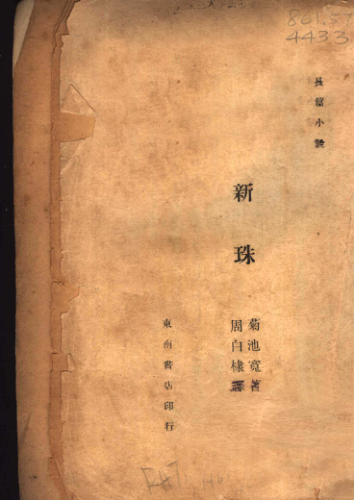 861.57
4433
長篇小說
新珠
菊池寬著
周白棣譯
東南書店印行